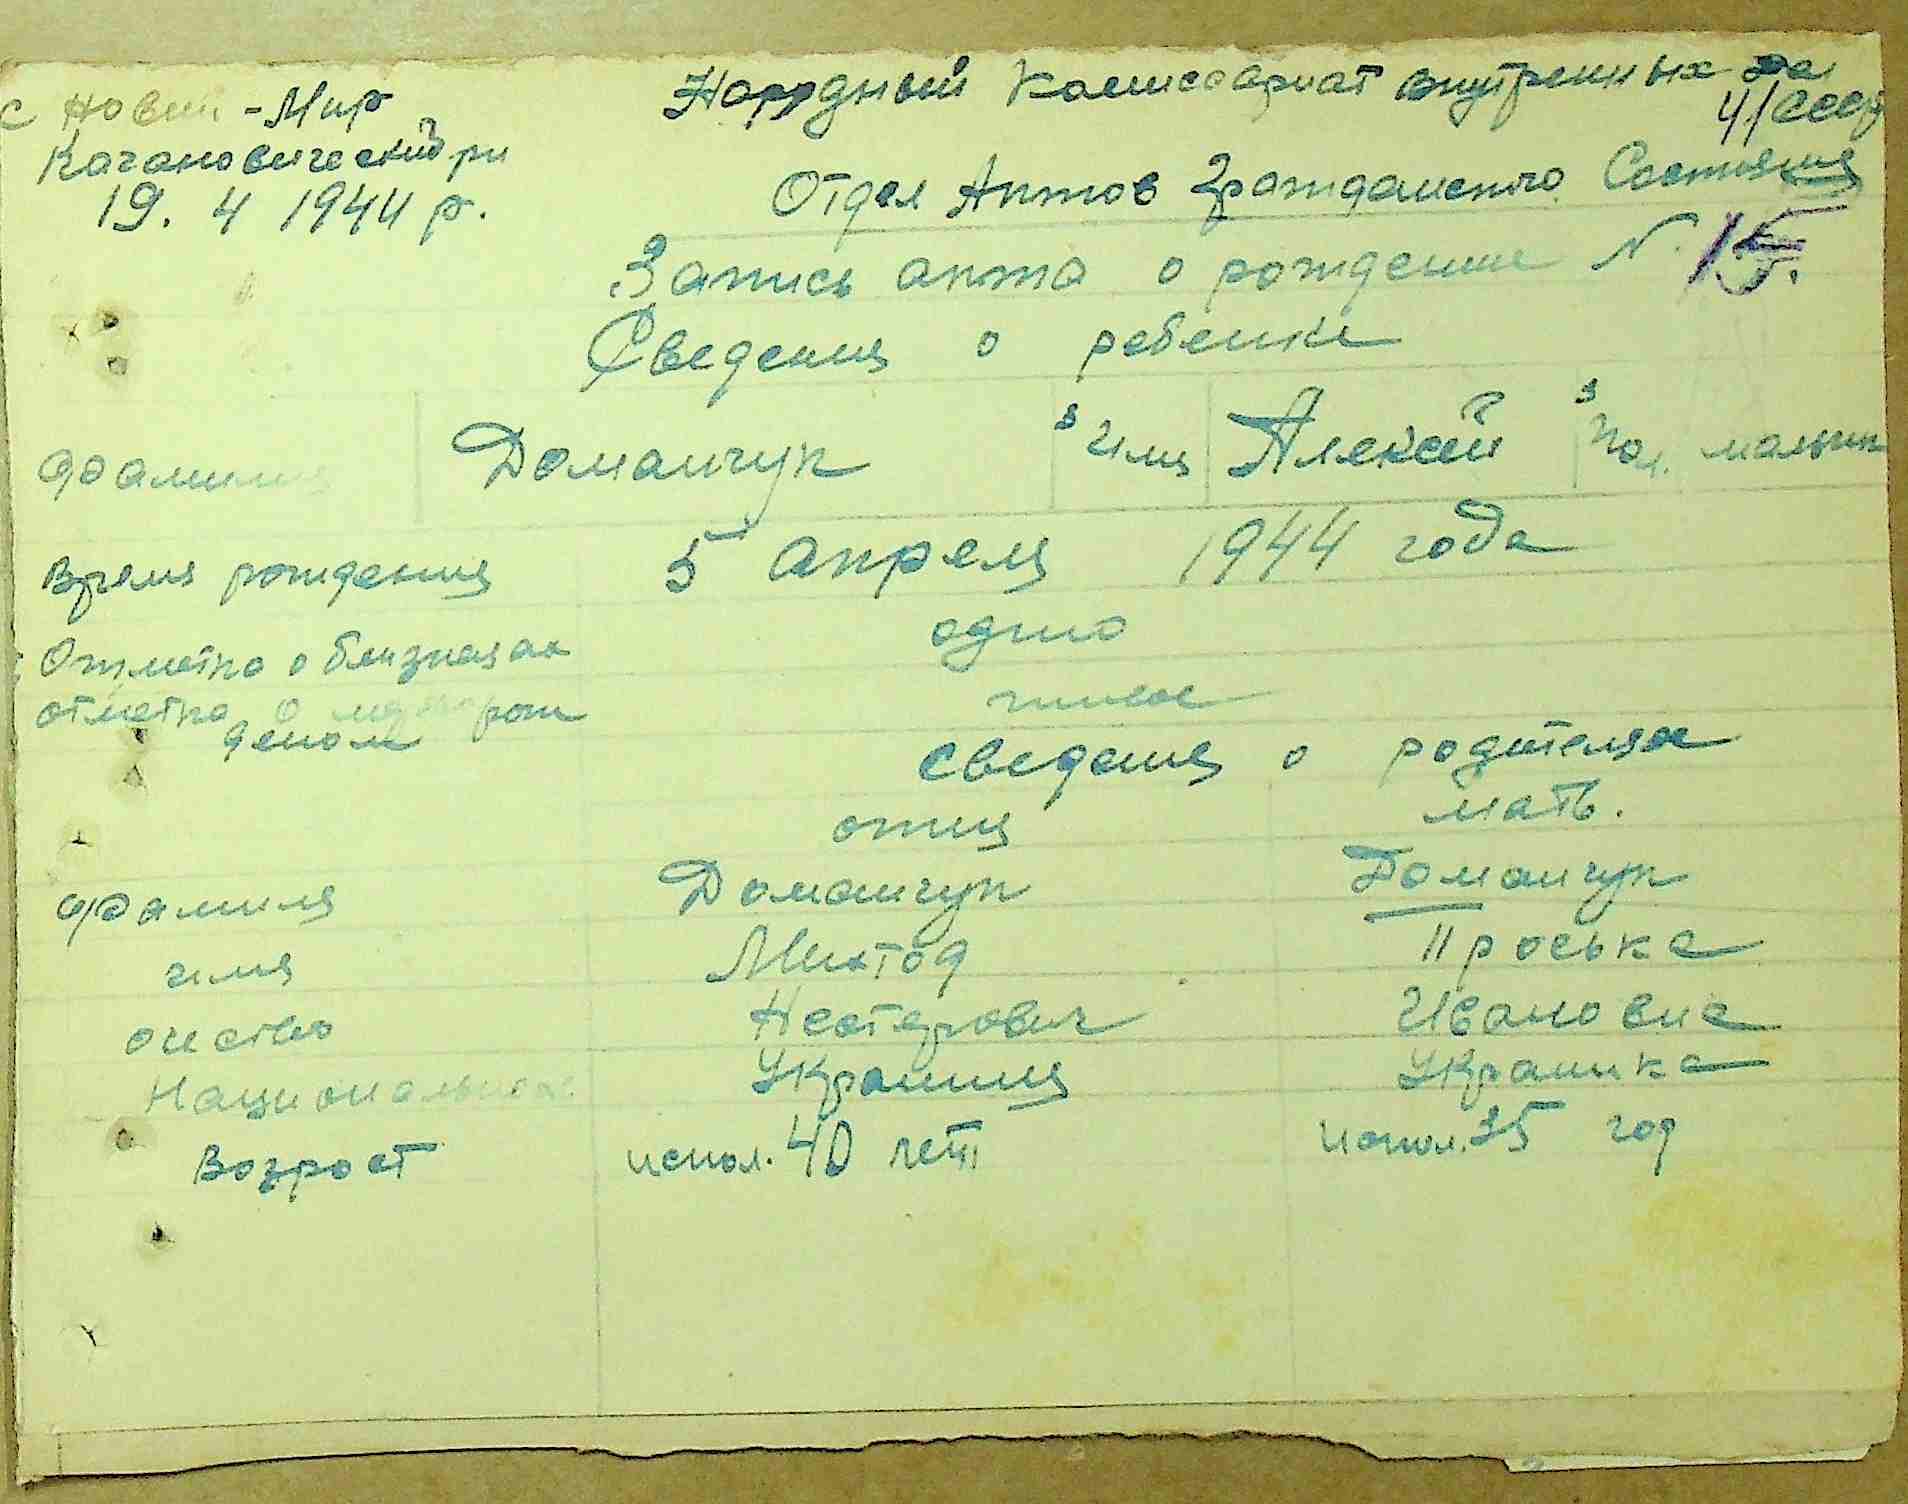 с Новий-Мир
Кагановический рн
19. 4 1944 р.
Народный Комиссариат внутренных дел
СССР
Отдел Актов Гражданского Состояния
Запись акта о рождение N. 15.
Сведения о ребенке
Фамилия Доманчук 3 Имя Алексей 3 Пол. мальчик
Время рождения 5 апреля 1944 года
Отметка о близнецах одно
отметка о рож
деном
сведения о родителях
отец мать.
Фамилия Доманчук Доманчук
имя Михтод Проська
очество Нестерович Ивановна
Национальнос. Украинец Украинка
Возраст испол. 40 лет испол. 35 год